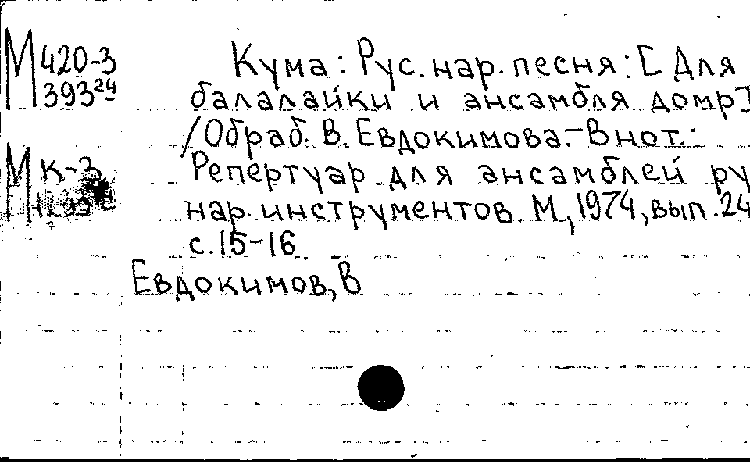 М 420-3
393²⁴
Кума: Рус. нар. песня: [Для
балалайки и ансамбля домр]
/Обраб. В. Евдокимова.-В нот.:
М к-3
Репертуар для ансамблей ру
нар. инструментов. М, 1974, вып. 24
с. 15-16
Евдокимов, В